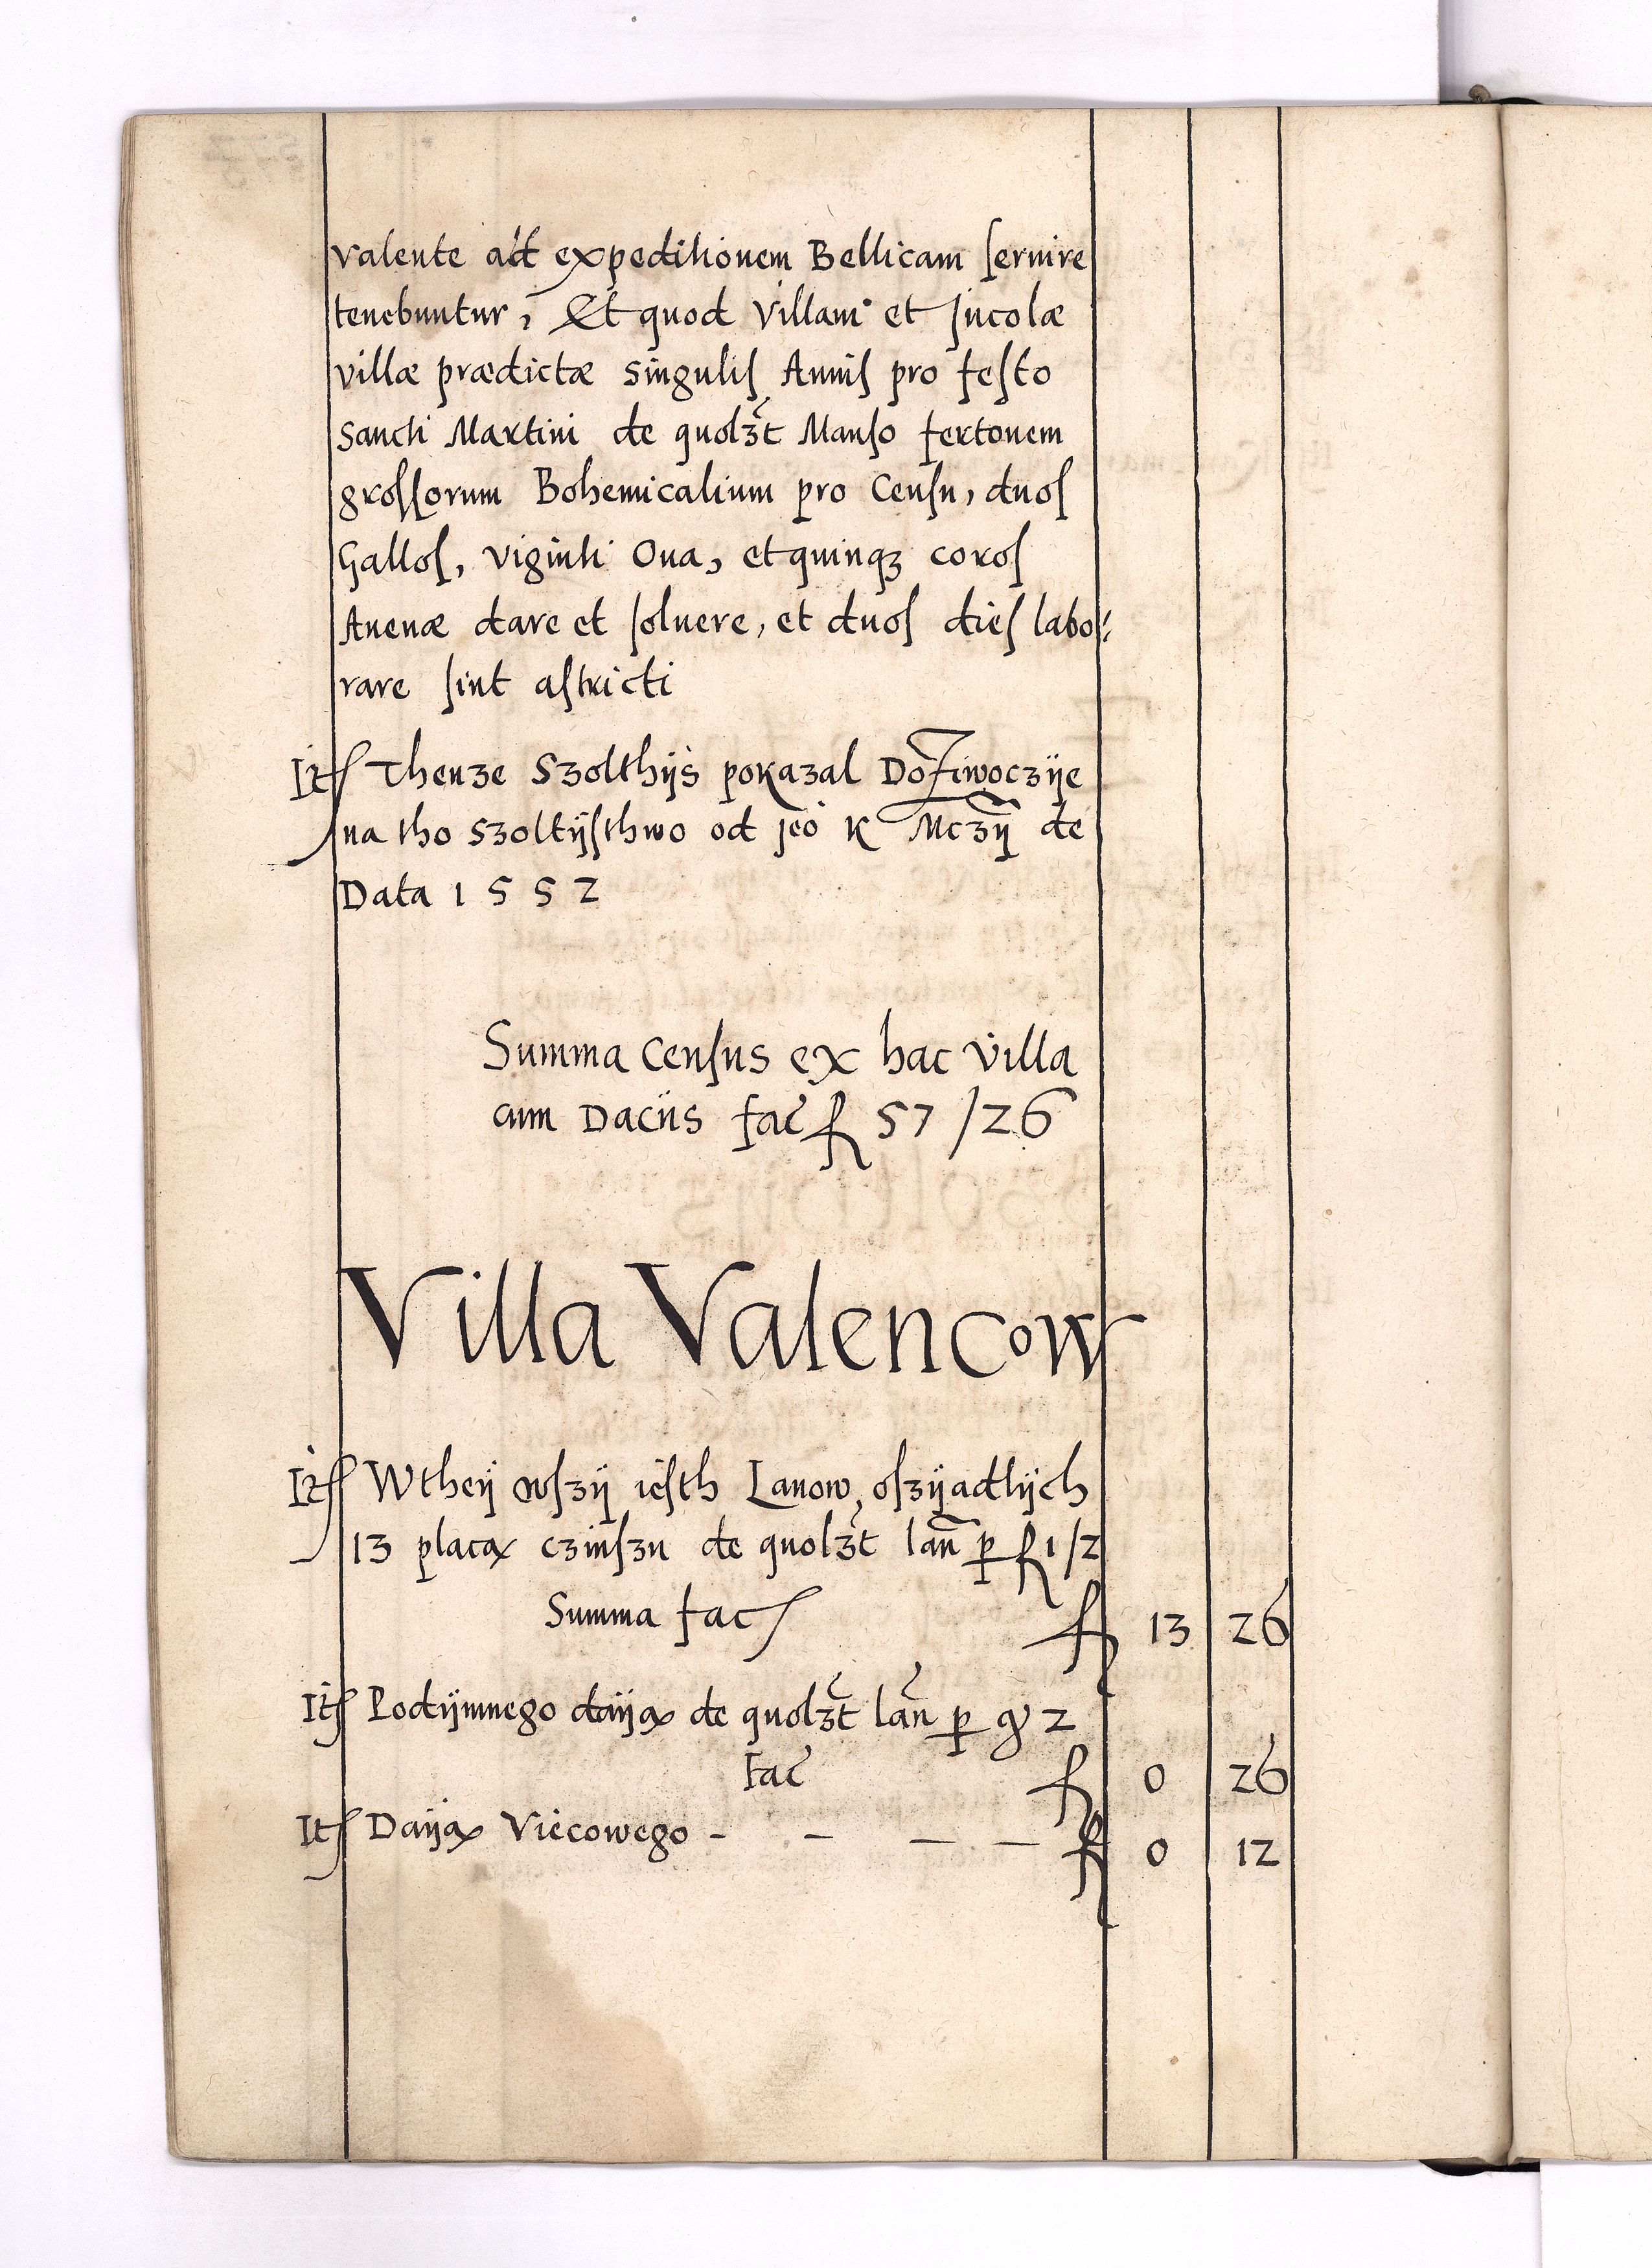 valente ad expeditionem Bellicam ſeruire
tenebuntur, Et quod Villani et Jncolæ
villæ prædictæ singuliſ Anniſ pro feſto
Sancti Martini de quolꝫt Manſo fertonem
groſſorum Bohemicalium pro Cenſu, duoſ
Galloſ, viginti Oua, et quinqꝫ coroſ
Auenæ dare et ſoluere, et duoſ dieſ labo⸗
rare ſint aſtricti
It Thenze Szolthijs pokazal Dożiwoczije
na tho szoltijſthwo od jeo K Mczij de
Data 1552
Summa Cenſus ex hac villa
cum Daciis fac fl 57/26
Villa Valencow
It Wtheij wſzij ieſth Lanow oſzijadlijch
13 placą czinſzu de quolꝫt lan p fl 1/2
Summa fac fl 13 26
It Podijmnego daiją de quolꝫt lan p gr 2
fac fl 0 26
It Daiją Viecowego - - - - fl 0 12